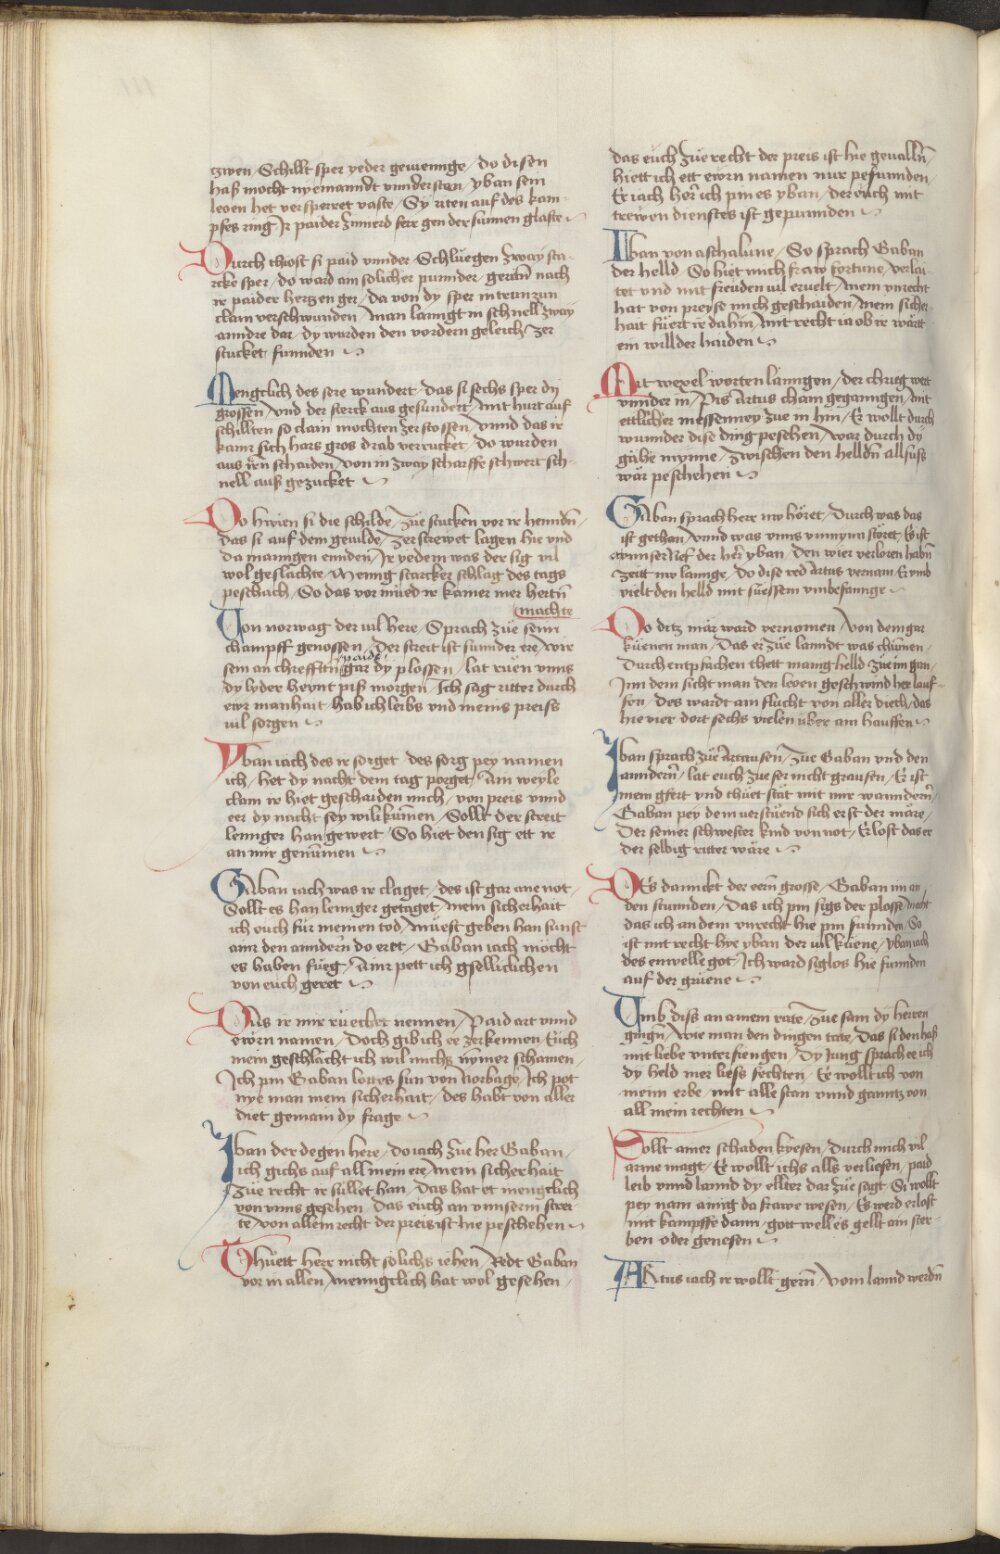 zwen Schillt sper yeder gewennge / do disen
haß mocht nyemanndt vnnderstan / yban sein
leoen het versperret vaste / Sy riten auf des kam-
pfes ring Ir paider zinierd ferr gen der sunnen glaste
Durch thiost si paid vnnder Schluegen zway sta-
rcke sper / do ward ain solicher punnder / gerant nach
ir paider hertzen ger / da von dy sper in trunzun
clain verschwunden / Man lanngt in schnell zway
anndre dar / dy wurden den vordern geleich zer
stucket funnden
Mengclich des sere wundert / das si sechs sper dy
grossen / vnd der sterck aus gesundert / mit hurt auf
schillten so clain mochten zerstossen / vnnd das ir
kainr sich hars gros drab verrucket / do wurden
aus iren schaiden / von in zway scharffe schwert sch-
nell auß gezucket
Do hwien si die schilde / zue stucken vor ir henndn
das si auf dem gevilde / zerstrewet lagen hie vnd
da mannigen ennden / Ir yedem was der sig vil
wol geslachte / Mennig starcker schlag des tags
peschach / So das vor mued ir kainer mer hertn
machte
Von norwag der vil here / Sprach zue seim
champff genossen / Der streit ist sunnder ere / wir
sein an chrefftn paide gar dy plossen / lat ruen vnns
dy lyder heynt piß morgen / Ich sag ritter durch
ewr manhait hab ich leibs vnd meins preiss
vil sorgen
Yban iach des ir sorget / des sorg pey namen
ich / Het dy nacht dem tag porget / Ain weyle
clain ir hiet geschaiden mich / von preis vnnd
eer dy nacht sey wilikumen / Sollt der streit
lennger han gewert / So hiet den sig ett ir
an mir genumen
Gaban iach was ir claget / des ist gar ane not /
Sollt es han lennger getaget / mein sicherhait
ich euch für meinen tod / muest geben han sunst
ainr den anndern do eret / Gaban iach möcht
es haben fueg / Ainr pett ich gselliclichen
von euch geret
Das ir mir ruechet nennen / Paid art vnnd
ewrn namen / Doch gib ich ee zerkennen Euch
mein geschlächt ich wil michs nymer schamen /
Ich pin Gaban lottes sun von Norbage / Ich pot
nye man mein sicherhait / des habt von aller
diet gemain dy frage
Yban der degen here / do iach zue her Gaban /
ich gichs auf all mein ere / mein sicherhait
zue recht ir sullet han / Das hat et mengclich
von vnns gesehen / das euch an vnnserm strei-
te von allem recht der preis ist hie peschehen
Thuett herr nicht solichs iehen / Redt Gaban
vor in allen / menngclich hat wol gesehen /
das euch zue recht der preis ist hie geualln /
hiett ich ett ewrn namen nur pefunnden /
Er iach her ich pin es yban / der euch mit
trewen dienstes ist gepunnden
Iban von aschalune / So sprach Gaban
der helld / So hiet mich fraw fortune / verlai-
tet vnd mit freuden vil eruelt / mein vnrecht
hat von preyse mich geschaiden / mein sicher-
hait fuert ir dahin / mit recht ia ob ir wartt
ein willder haiden
Mit wexel worten lanngen / der chrieg wert
vnnder in / Pis Artus cham geganngen / mit
ettlicher messenney zue in hin / Er wollt durch
wunnder dise ding pesehen / war durch dy
gähe mynne / zwischen den helldn allsuss
wär peschehen
Gaban sprach herr nw höret / durch was das
ist gethan / vnnd was vnns vnmyun störet / Es ist
ewnnser lief der her yban / den wier verloren habn
zeitt nw lannge / do dise red Artus vernam / Er vmb
vielt den helld mit suessem vmbefannge
Do ditz mär ward vernomen / von dem gar
küenen man / Das er zue lanndt was chumen /
Durch entpfachen thett manig helld zue im gan /
Inn dem sicht man den leoen geschwind her lauf-
fen / des wardt ain flucht von aller dieth / das
hie vier dort sechs vielen über ain hauffen
Iban sprach zue Artausen / zue Gaban vnd den
anndern / lat euch zue ser nicht grausen / Er ist
mein gfert vnd thuet stät mit mir wanndern /
Gaban pey dem verstuend sich erst der märe /
Der seiner schwester kind von not / Erlost das er
der selbig ritter wäre
DEs dannckt der eern grosse / Gaban im an
den stunnden / Das ich pin sigs der plosse / nicht
das ich an dem vnrecht hie pin funnden / So
ist mit recht hye yban der vil küene / yban iach
des enwelle got / Ich ward siglos hie funnden
auf der gruene
Vmb diss an ainem rate / zue sam dy herren
gingn / wie man den dingen tate / Das si den haß
mit liebe vnterfiengen / Dy jung sprach ee ich
dy held mer liess fechten / Ee wollt ich von
meim erbe / mit alle stan vnnd ganntz von
all mein rechten
Sollt ainer schaden kyesen / durch mich vil
arme magt / Ee wollt ichs alls verliesen / paid
leib vnnd lannd dy ellter dar zue sagt / Si wollt
pey nam ainig da frawe wesen / Es werd erlost
mit kampffe dann / gott well es gellt ain ster-
ben oder genesen
ARtus iach ir wollt gern / vom lannd werdn